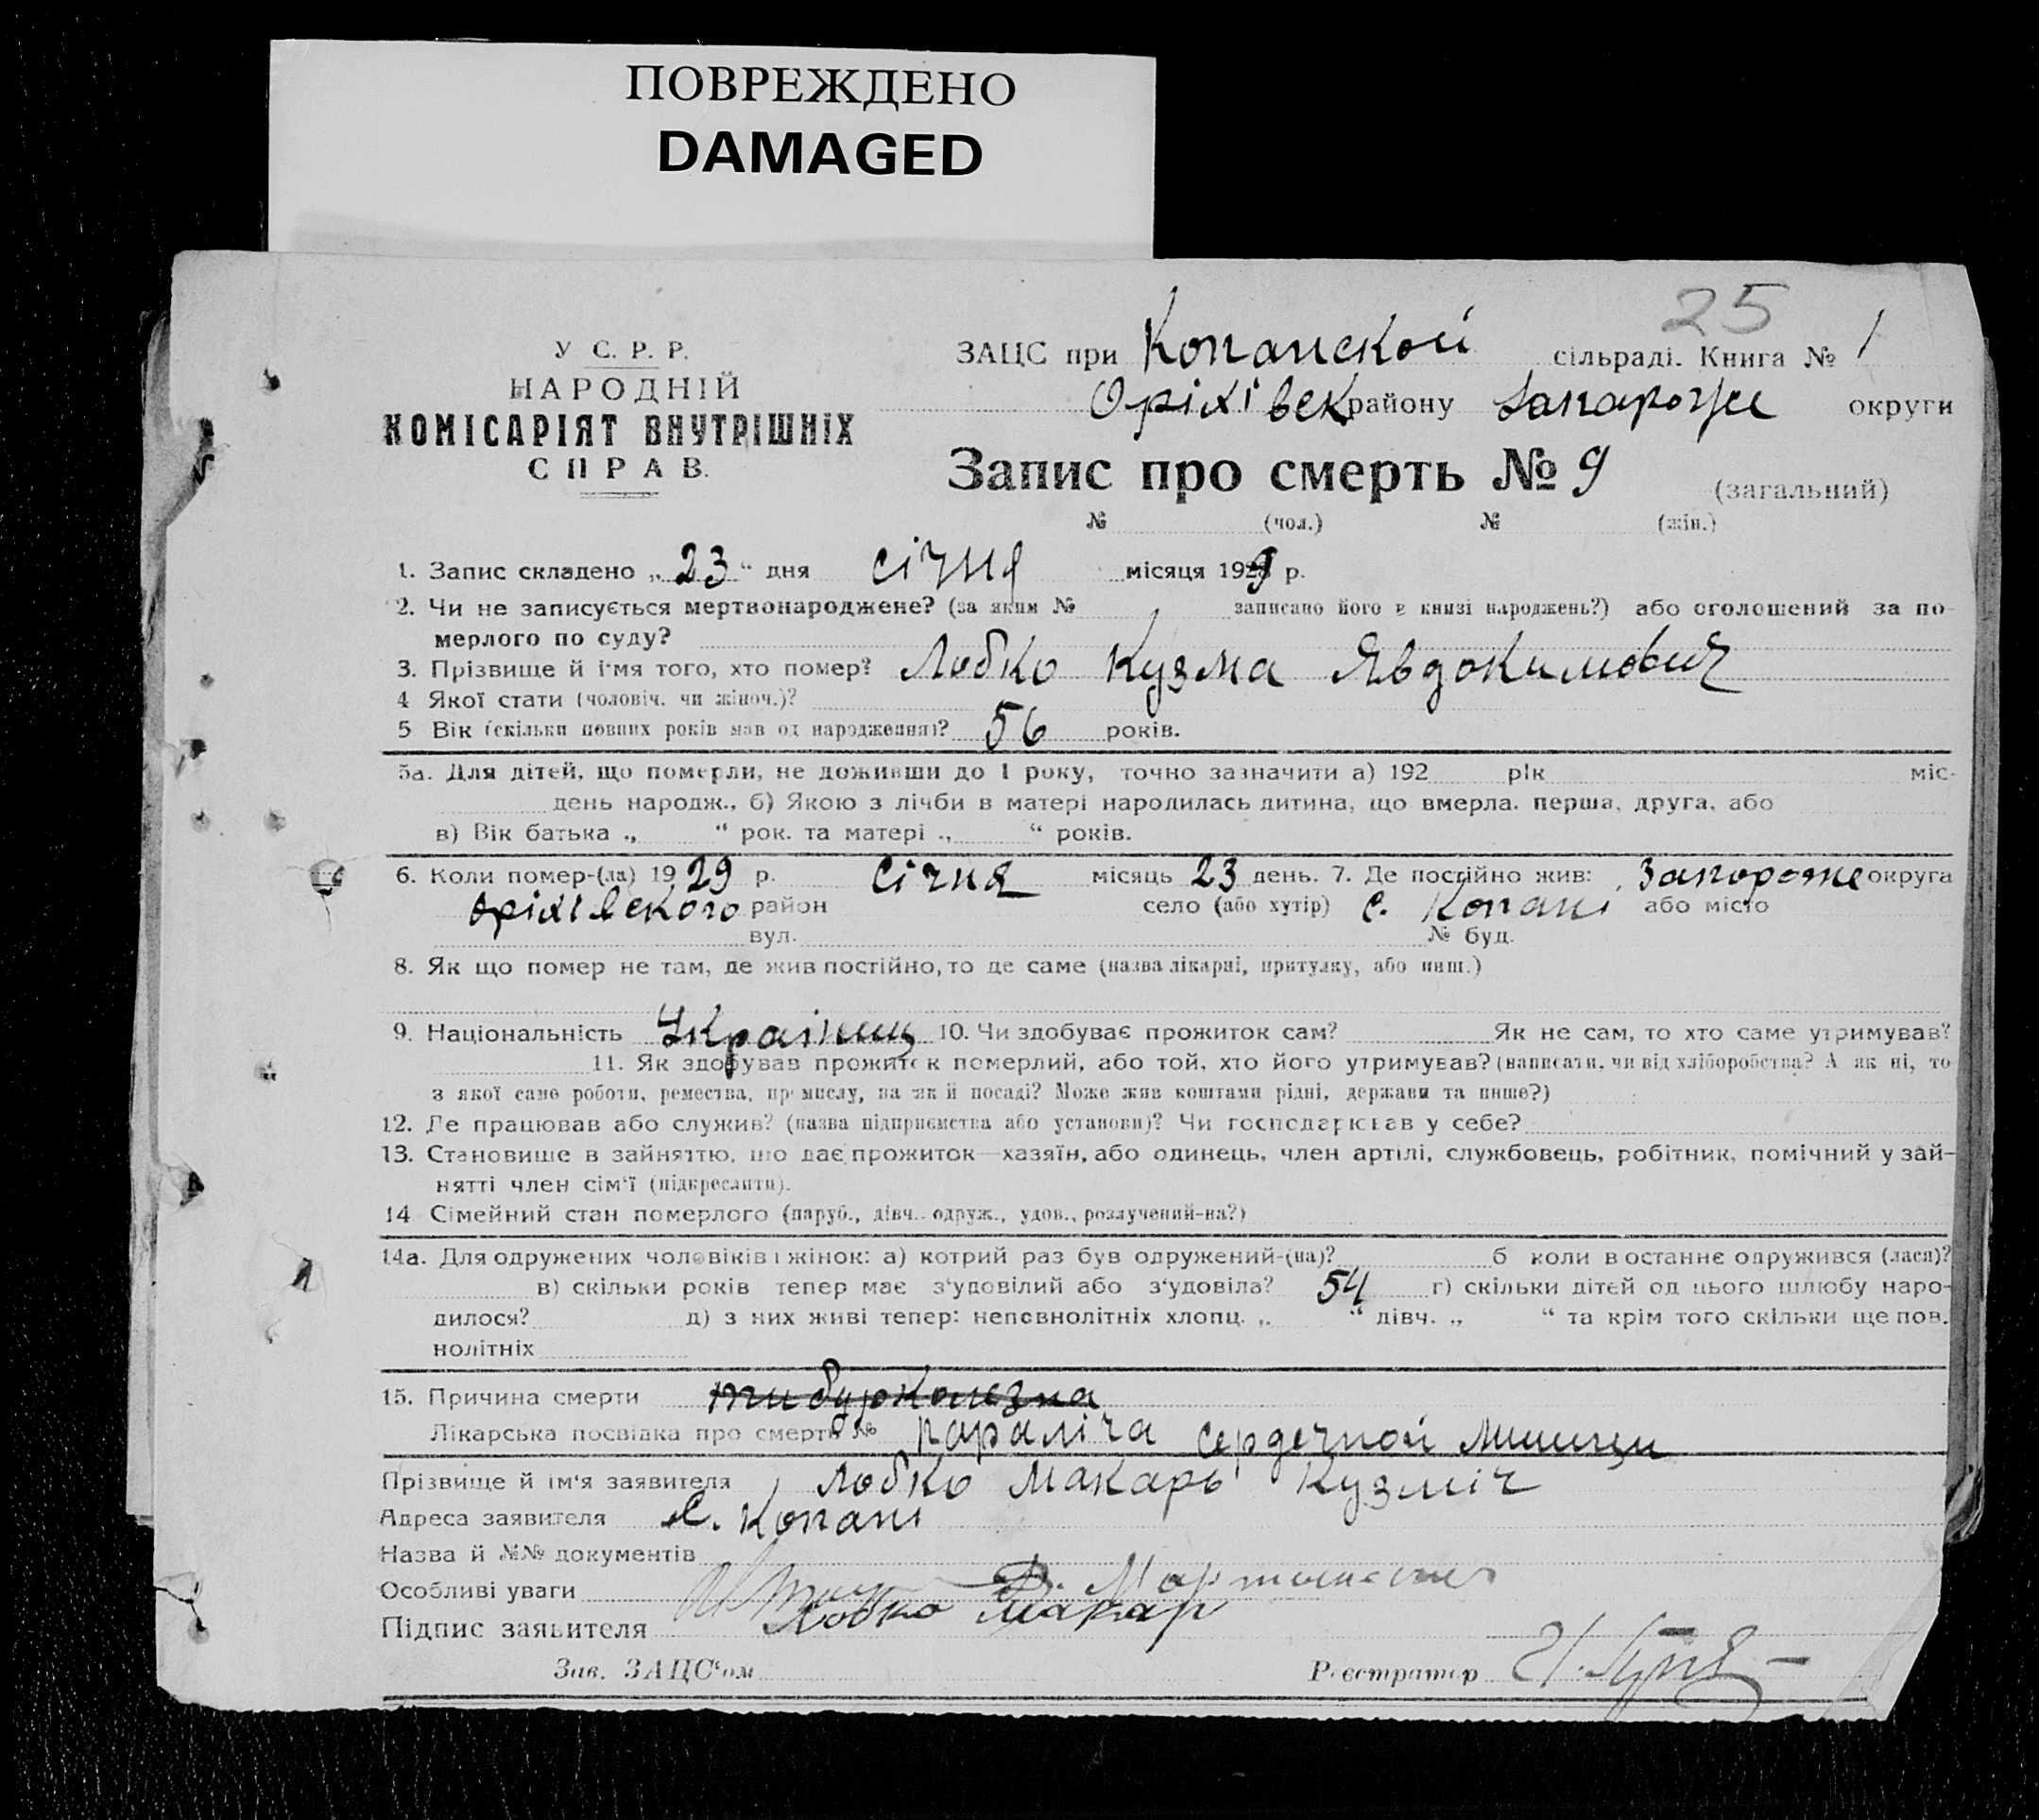 ПОВРЕЖДЕНО
DAMAGED
25
У С. Р. Р.
НАРОДНІЙ
КОМІСАРІЯТ ВНУТРІШНІХ
СПРАВ.
ЗАЦС при Копанской сільраді. Книга № 1
Оріхівск району Запарожже округи
Запис про смерть № 9 (загальний)
№ (чол.) № (жін.)
1. Запис складено „ 23 “ дня січня місяця 1929 р.
2. Чи не записується мертвонароджене? (за яким № записано його в книзі народжень?) або оголошений за по-
мерлого по суду?
3. Прізвище й ім'я того, хто помер? Лобко Кузма Явдокимович
4 Якої стати (чоловіч. чи жіноч.)?
5 Вік (скільки повних років мав од народження)? 56 років.
5а. Для дітей, що померли, не доживши до 1 року, точно зазначити а) 192 рік міс.
день народж., б) Якою з лічби в матері народилась дитина, що вмерла. перша, друга, або
в) Вік батька „ “ рок. та матері „ “ років.
6. Коли помер-(ла) 1929 р. Січня місяць 23 день. 7. Де постійно жив: Запороже округа
Оріхівского район село (або хутір) с. Копані або місто
вул. № буд.
8. Як що помер не там, де жив постійно, то де саме (назва лікарні, притулку, або инш.)
9. Національність Українец 10. Чи здобуває прожиток сам? Як не сам, то хто саме утримував?
11. Як здобував прожиток померлий, або той, хто його утримував? (написати, чи від хліборобства? А як ні, то
з якої саме роботи, ремества, промислу, на якій посаді? Може жив коштами рідні, держави та инше?)
12. Де працював або служив? (назва підприємства або установи)? Чи господарював у себе?
13. Становище в зайняттю, що дає прожиток—хазяїн, або одинець, член артілі, службовець, робітник, помічний у зай-
нятті член сім'ї (підкреслити).
14 Сімейний стан померлого (паруб., дівч. одруж., удов., розлучений-на?)
14а. Для одружених чоловіків і жінок: а) котрий раз був одружений-(на)? б коли востаннє одружився (лася)?
в) скільки років тепер має з'удовілий або з'удовіла? 54 г) скільки дітей од цього шлюбу наро-
дилося? д) з них живі тепер: неповнолітніх хлопц. „ “ дівч. „ “ та крім того скільки ще пов.
нолітніх
15. Причина смерти тибуркольозна
Лікарська посвідка про смерть № параліча сердечной мишци
Прізвище й ім'я заявителя Лобко Макарь Кузміч
Адреса заявителя с. Копані
Назва й №№ документів
Особливі уваги
Підпис заявителя Лобко Макар
Зав. ЗАЦС'ом Реєстратор